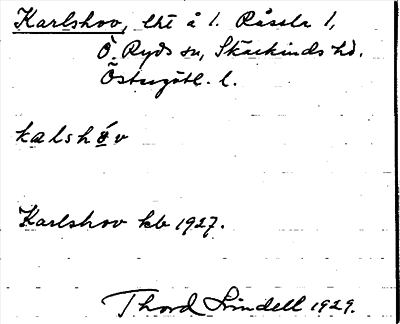 Karlshov, lht å l. Råssla 1,
Ö. Ryds sn, Skärkinds hd.
Östergötl. l.
kalshǿv
Karlshov kb 1927.
Thord Lindell 1929.